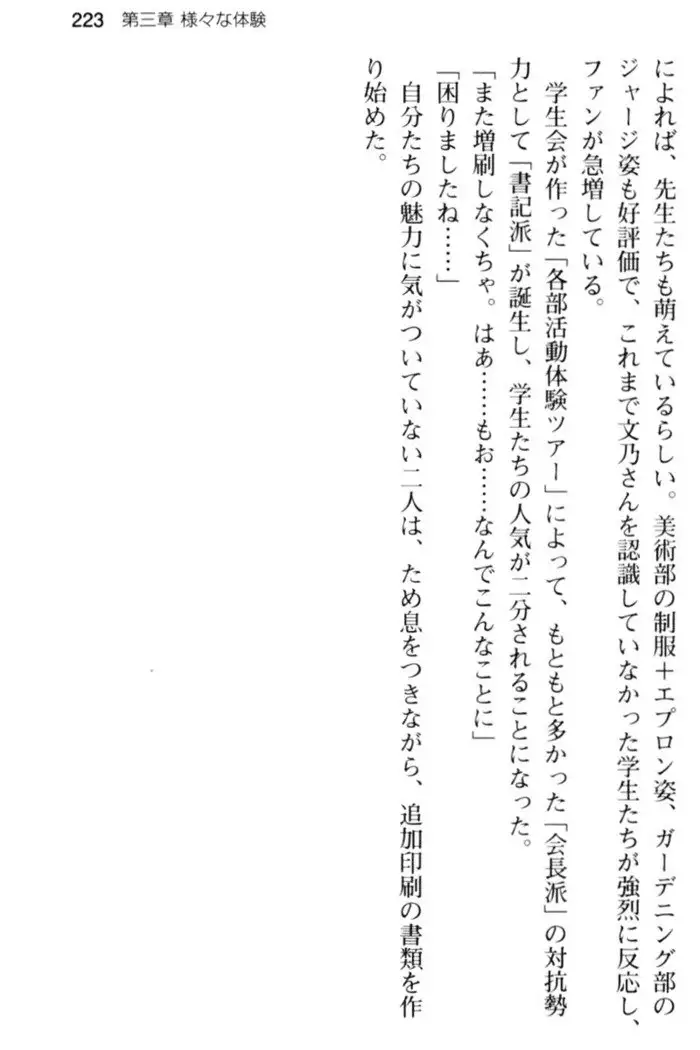 223 第三章 様々な体験
によれば、先生たちも萌えているらしい。美術部の制服＋エプロン姿、ガーデニング部の
ジャージ姿も好評価で、これまで文乃さんを認識していなかった学生たちが強烈に反応し、
ファンが急増している。
学生会が作った「各部活動体験ツアー」によって、もともと多かった「会長派」の対抗勢
力として「書記派」が誕生し、学生たちの人気が二分されることになった。
「また増刷しなくちゃ。はあ……もお……なんでこんなことに」
「困りましたね……」
自分たちの魅力に気がついていない二人は、ため息をつきながら、追加印刷の書類を作
り始めた。